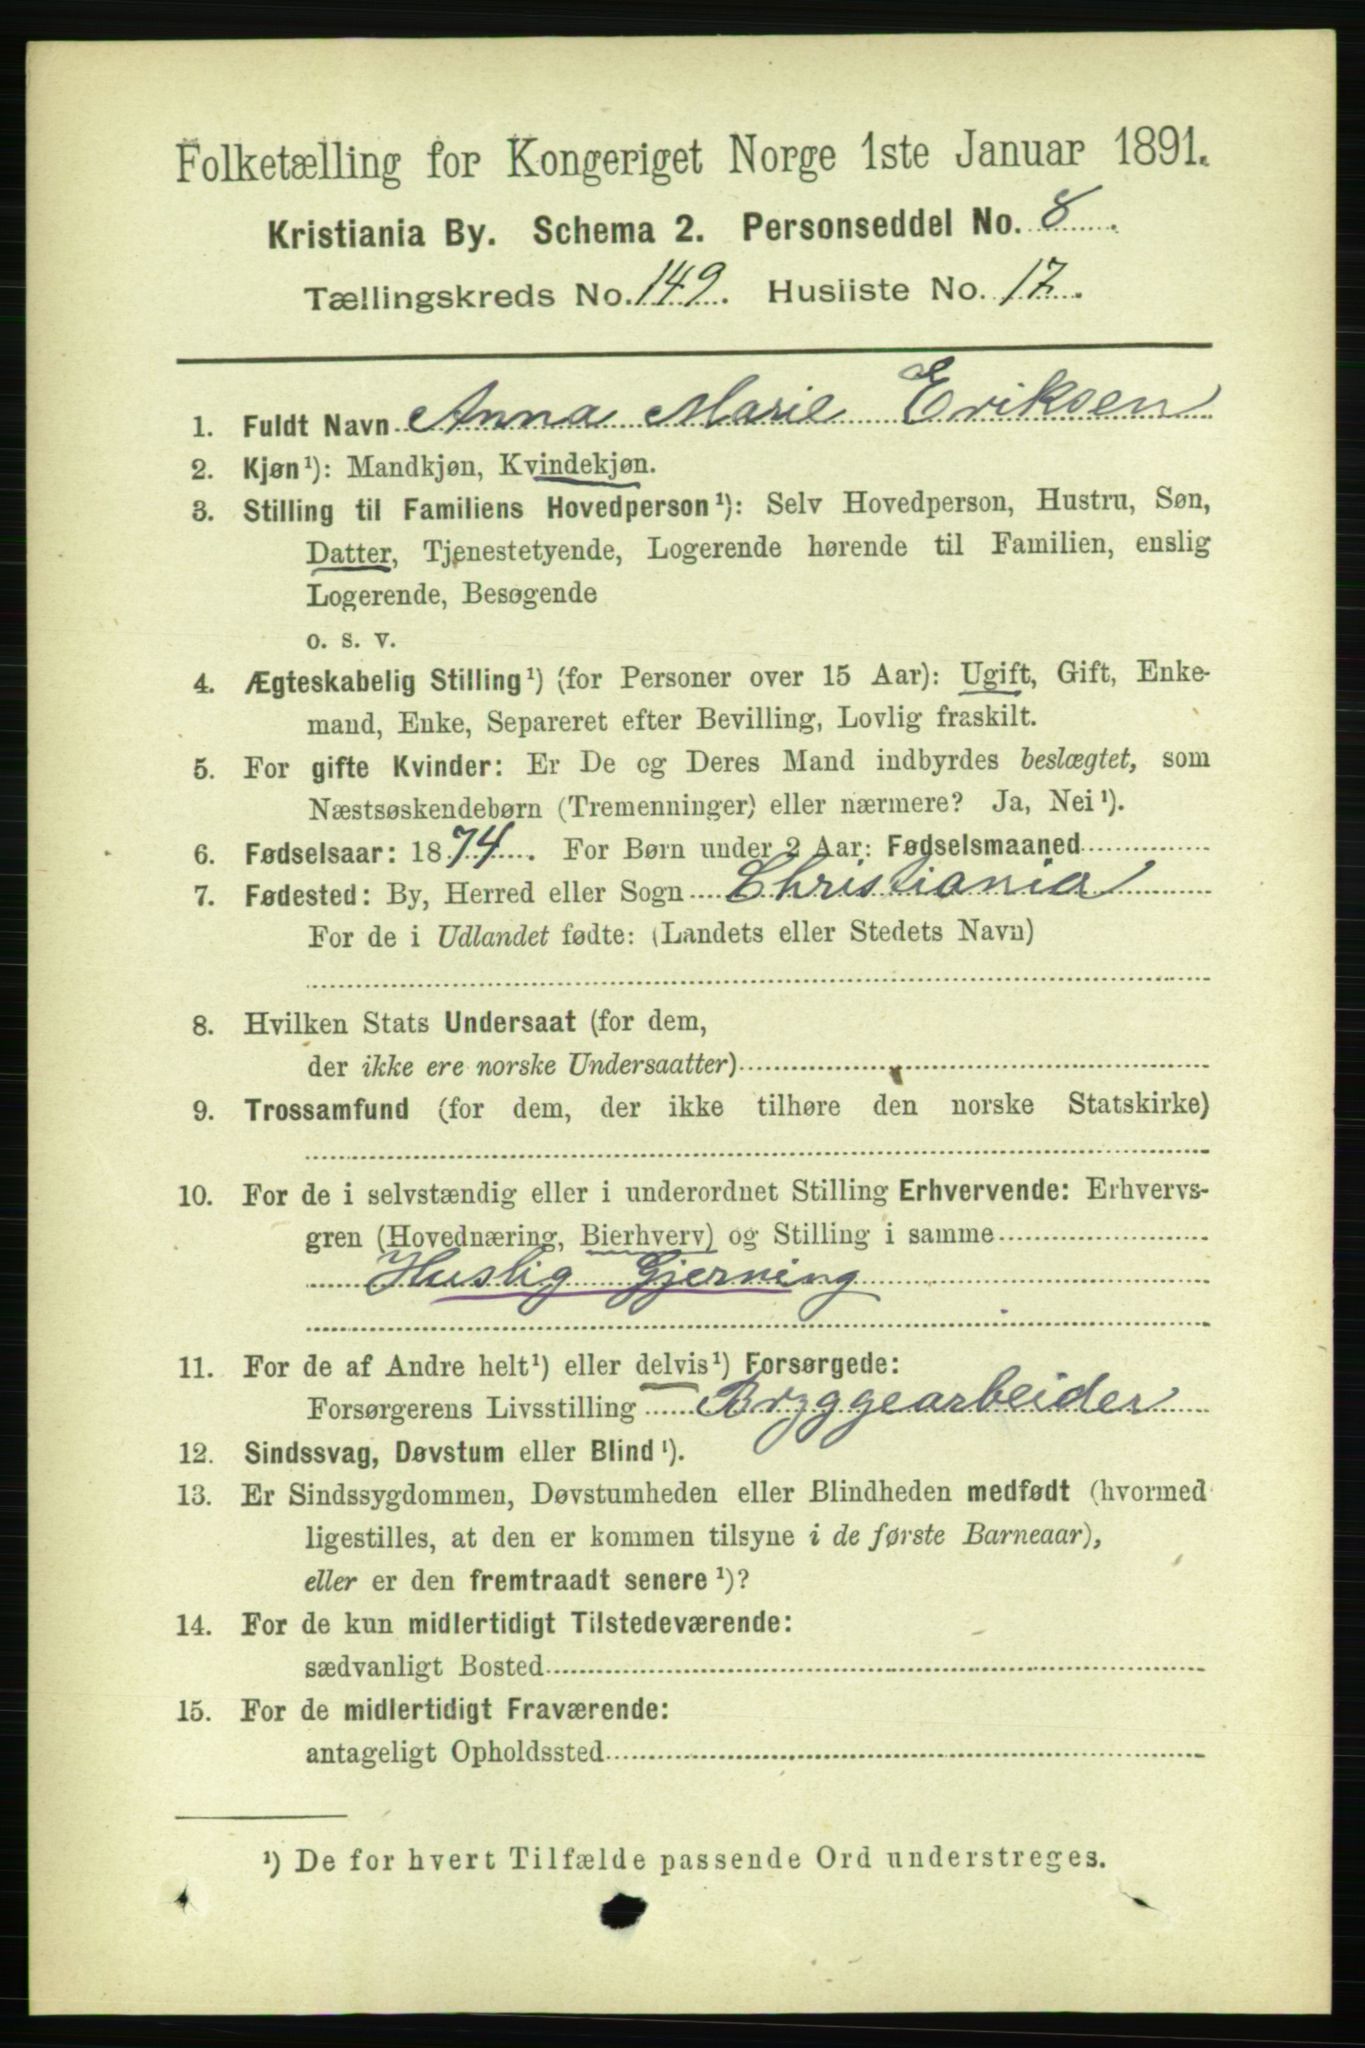 Folketælling for Kongeriget Norge 1ste Januar 1891.
Kristiania By. Schema 2. Personseddel No. 8.
Tællingskreds No. 149. Husliste No. 17.
1. Fuldt Navn Anna Marie Eriksen
2. Kjøn¹): Mandkjøn, Kvindekjøn.
3. Stilling til Familiens Hovedperson¹): Selv Hovedperson, Hustru, Søn,
Datter, Tjenestetyende, Logerende hørende til Familien, enslig
Logerende, Besøgende
o. s. v.
4. Ægteskabelig Stilling¹) (for Personer over 15 Aar): Ugift, Gift, Enke-
mand, Enke, Separeret efter Bevilling, Lovlig fraskilt.
5. For gifte Kvinder: Er De og Deres Mand indbyrdes beslægtet, som
Næstsøskendebørn (Tremenninger) eller nærmere? Ja, Nei¹).
6. Fødselsaar: 1874. For Børn under 2 Aar: Fødselsmaaned
7. Fødested: By, Herred eller Sogn Christiania
For de i Udlandet fødte: (Landets eller Stedets Navn)
8. Hvilken Stats Undersaat (for dem,
der ikke ere norske Undersaatter)
9. Trossamfund (for dem, der ikke tilhøre den norske Statskirke)
10. For de i selvstændig eller i underordnet Stilling Erhvervende: Erhvervs-
gren (Hovednæring, Bierhverv) og Stilling i samme
Huslig Gjerning
11. For de af Andre helt¹) eller delvis¹) Forsørgede:
Forsørgerens Livsstilling Bryggearbeider
12. Sindssvag, Døvstum eller Blind¹).
13. Er Sindssygdommen, Døvstumheden eller Blindheden medfødt (hvormed
ligestilles, at den er kommen tilsyne i de første Barneaar),
eller er den fremtraadt senere¹)?
14. For de kun midlertidigt Tilstedeværende:
sædvanligt Bosted
15. For de midlertidigt Fraværende:
antageligt Opholdssted
¹) De for hvert Tilfælde passende Ord understreges.